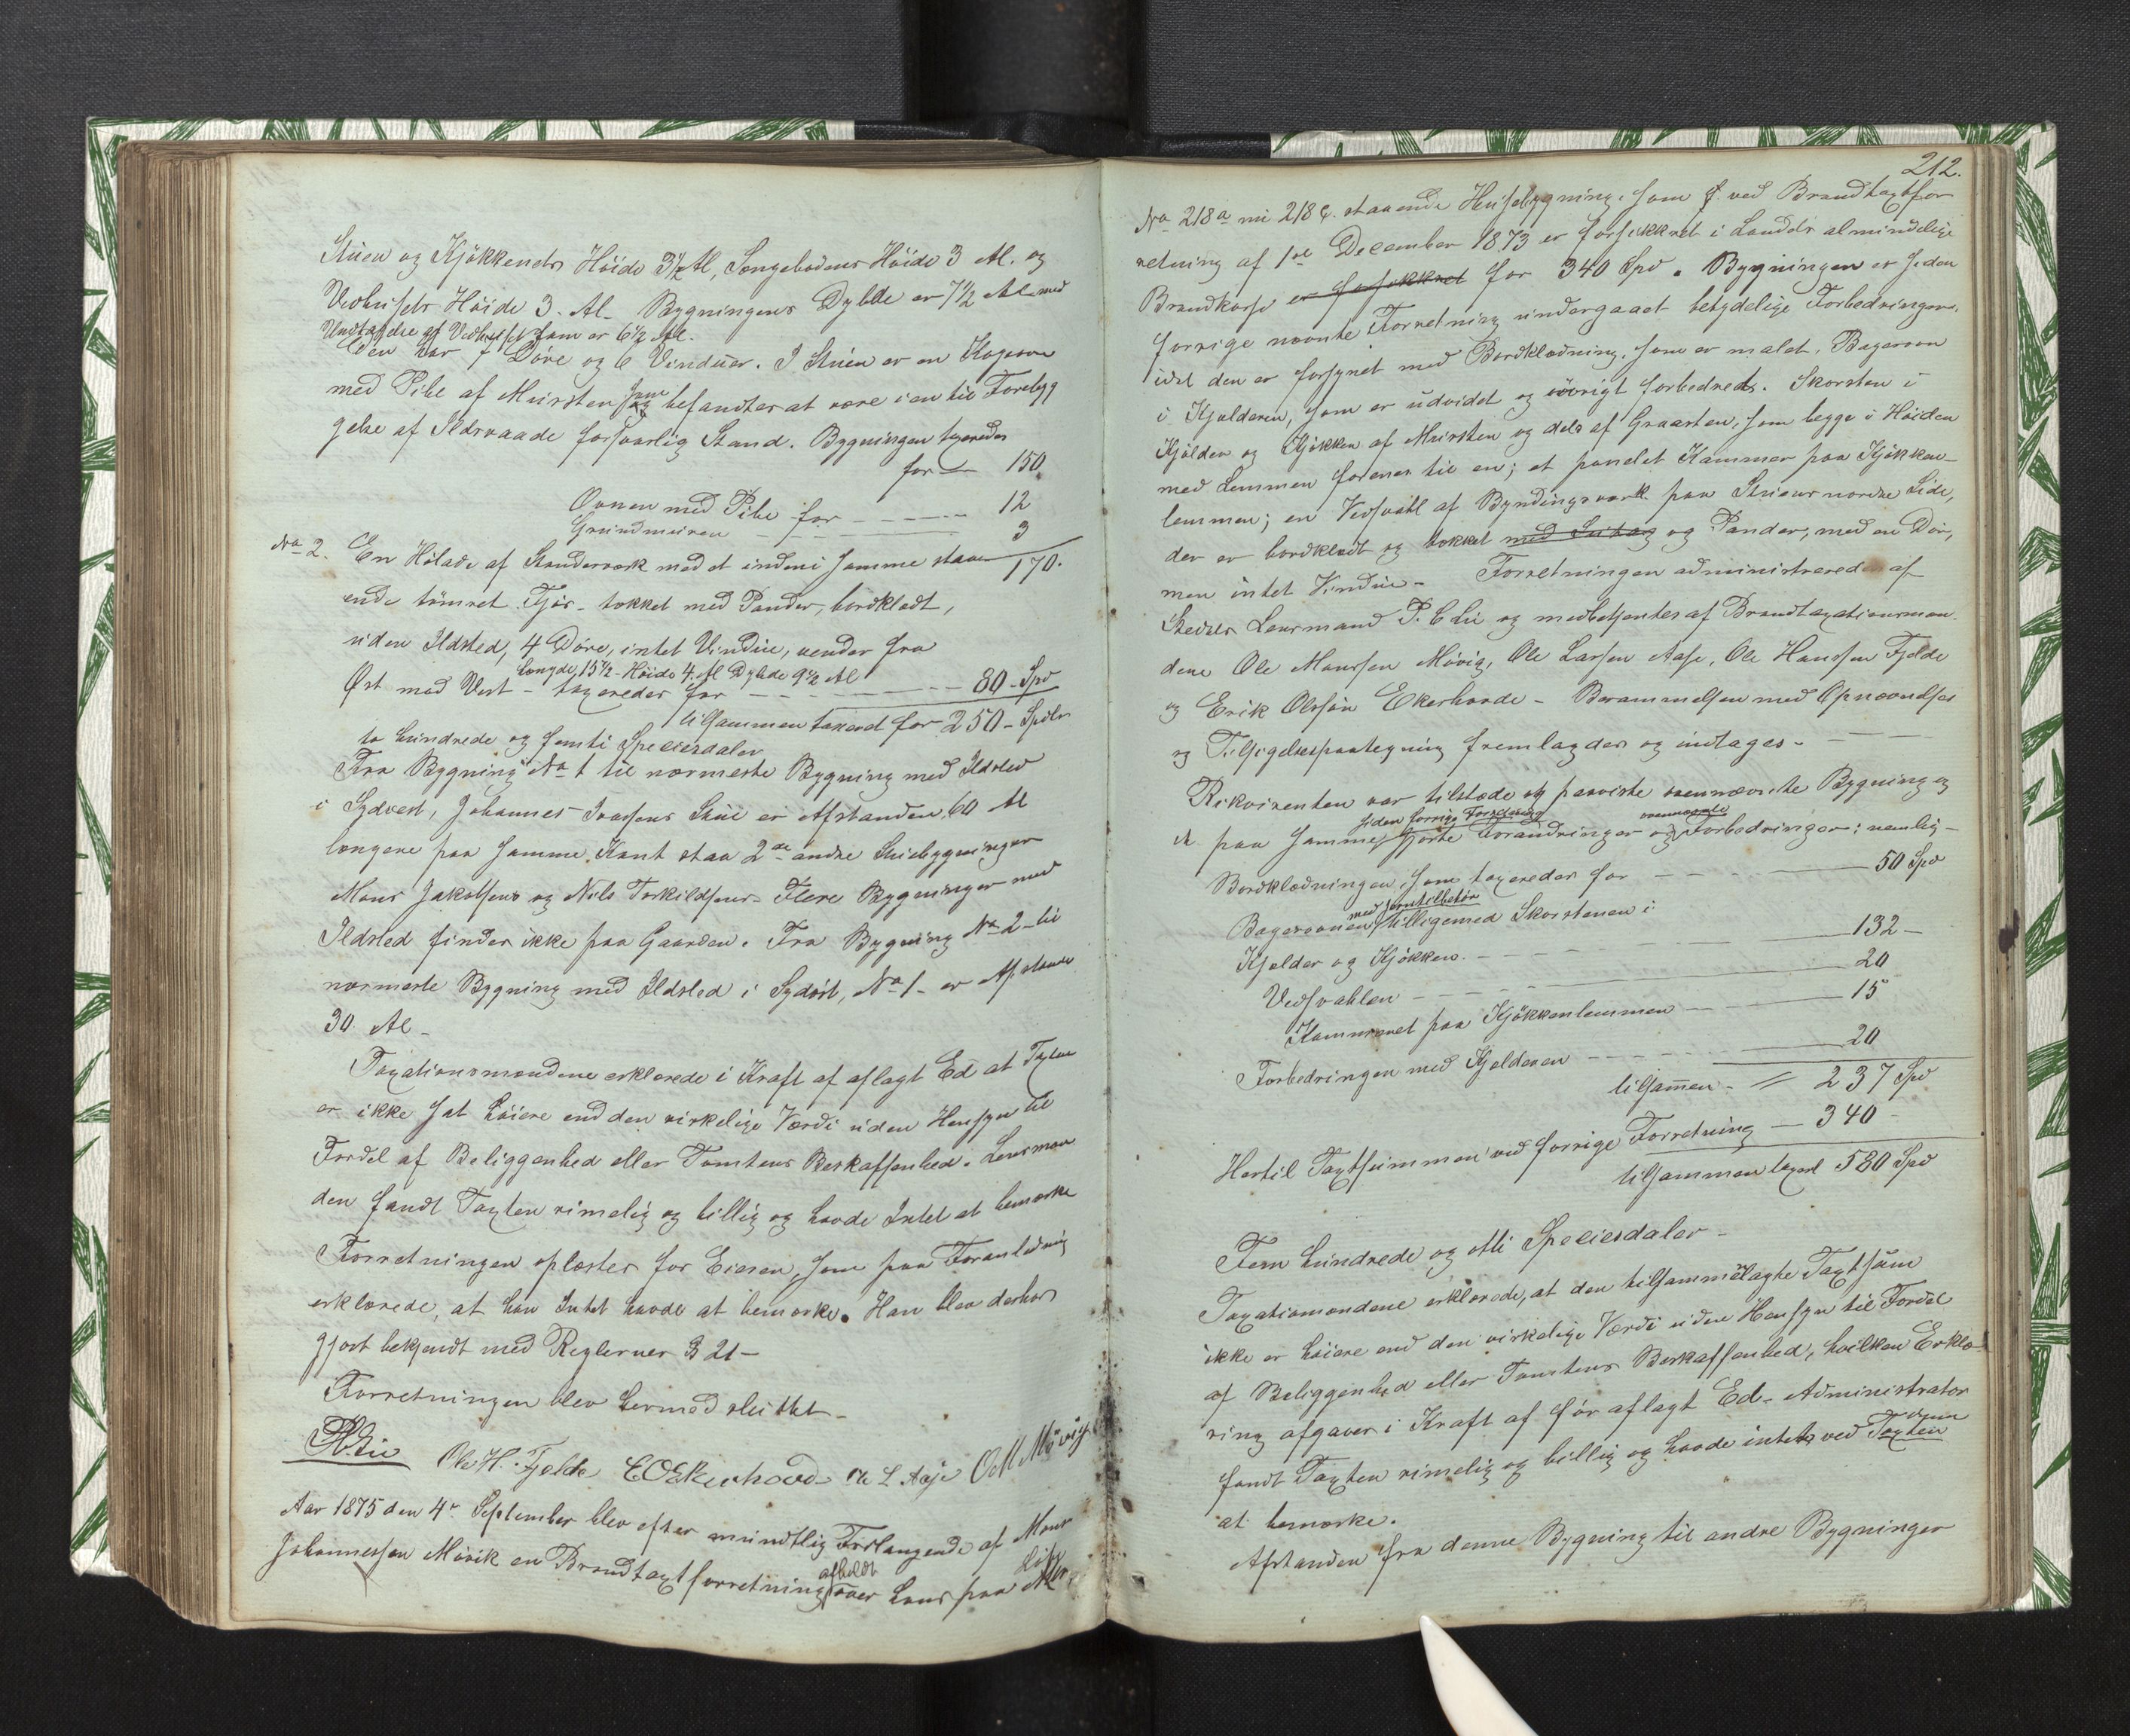 Stuen og Kjøkkenets Høide 3½ Al, Sengebodens Høide 3 Al. og
Vedhusets Høide 3. Al- Bygningens Dybde er 7½ Al med
Undtagelse af Vedhuset som er 6½ Al.
Den har 7 Døre og 6 Vinduer. I Stuen er en Kogeovn
med Pibe af Mursten som befandtes at være i en til Forebyg
gelse af Ildsvaade forsvarlig Stand. Bygningen taxeredes
for — 150
Ovnen med Pibe for - - - - 12
Grundmuren - - - - 3
170.
No 2. En Hølade af Stenderværk med et indeni samme staa-
ende tømret Fjøs- tækket med Pander, bordklædt,
uden Ildsted, 4 Døre, intet Vindue, vender fra
Længde, 15½- Høide 4. Al Dybde 9½ Al
Øst mod Vest- taxeredes for - - - - 80- Spd
tilsammen taxeret for 250- Spdlr
to hundrede og femti Speciesdaler
Fra Bygning No 1 til nærmeste Bygning med Ildsted
i Sydvest, Johannes Ivarsens Stue er Afstanden 60 Al
længere paa samme Kant staa 2de andre Stuebygninger
Mons Jakobsens og Nils Torkildsens- Flere Bygninger med
Ildsted findes ikke paa Gaarden. Fra Bygning No 2 - til
nærmeste Bygning med Ildsted i Sydøst, No 1- er Afstanden
30 Al-
Taxationsmændene erklærede i Kraft af aflagt Ed at Taxten
er ikke sat høiere end den virkelige Værdi uden Hensyn til
Fordel af Beliggenhed eller Tomtens Beskaffenhed. Lensman
den fandt Taxten rimelig og billig og havde Intet at bemærke
Forretningen oplæstes for Eieren, som paa Foranledning
erklærede, at han Intet havde at bemærke. Han blev derhos
gjort bekjendt med Reglernes § 21-
Forretningen blev hermed sluttet-
P. Lie Ole H. Fjelde E O Ekerhovd Ole L. Aase O M Møvig
Aar 1875 den 4de September blev efter mundtlig Forlangende af Mons
Johannessen Møvik en Brandtaxtforretning afholdt over hans paa
212.
No 218a nu 218c. staaende Husebygning, som ved Brandtaxtfor
retning af 1ste December 1873 er forsikkret i Landets almindelige
Brandkasse er forsikkret for 340 Spd. Bygningen er siden
forrige nævnte Forretning undergaaet betydelige Forbedringer,
idet den er forsynet med Bordklædning, som er malet, Bagerovn
i Kjælderen, som er udvidet og øvrigt forbedret. Skorsten i
Kjælder og Kjøkken af Mursten og dels af Graasten, som begge i Høiden
med Lemmen forenes til en; et panelet Kammer paa Kjøkken-
lemmen; en Vedsvahl af Byndingsværk paa Stuens nordre Side,
der er bordklædt og tækket med og Pander, med en Dør,
men intet Vindue- Forretningen administreredes af
Stedets Lensmand P. Lie og medbetjentes af Brandtaxationsmæn-
dene Ole Monssen Møvig, Ole Larsen Aase, Ole Hanssen Fjelde
og Erik Olssøn Ekerhovde- Berammelsen med Opnævnelse
og Tilsigelsespaategning fremlagdes og indtages- - -
Rekvirenten var tilstede og paaviste ovennævnte Bygning og
siden forrige Forretning ovennævnte
de paa samme gjorte Forandringer og Forbedringer; nemlig-
Bordklædningen, som taxeredes for - - - 50 Spd
med Jerntilbehør
Bagerovnen tilligemed Skorstenen i
Kjælder og Kjøkken - - - 132-
Vedsvahlen - - - 20
Kammeret paa Kjøkkenlemmen - - - 15
Forbedringen med Kjælderen - - - 20
tilsammen - = 237 Spd
Hertil Taxtsummen ved forrige Forretning - 340-
tilsammen taxert 580 Spd
Fem hundrede og otti Speciesdaler-
Taxationsmændene erklærede, at den tilsammenlagte Taxtsum
ikke er høiere end den virkelige Værdi uden Hensyn til Fordel
af Beliggenhed eller Tomtens Beskaffenhed, hvilken Erklæ-
ring afgaves i Kraft af før aflagt Ed- Administrator
fandt Taxten rimelig og billig og havde intet ved Taxten
at bemærke.
Afstanden fra denne Bygning til andre Bygninger